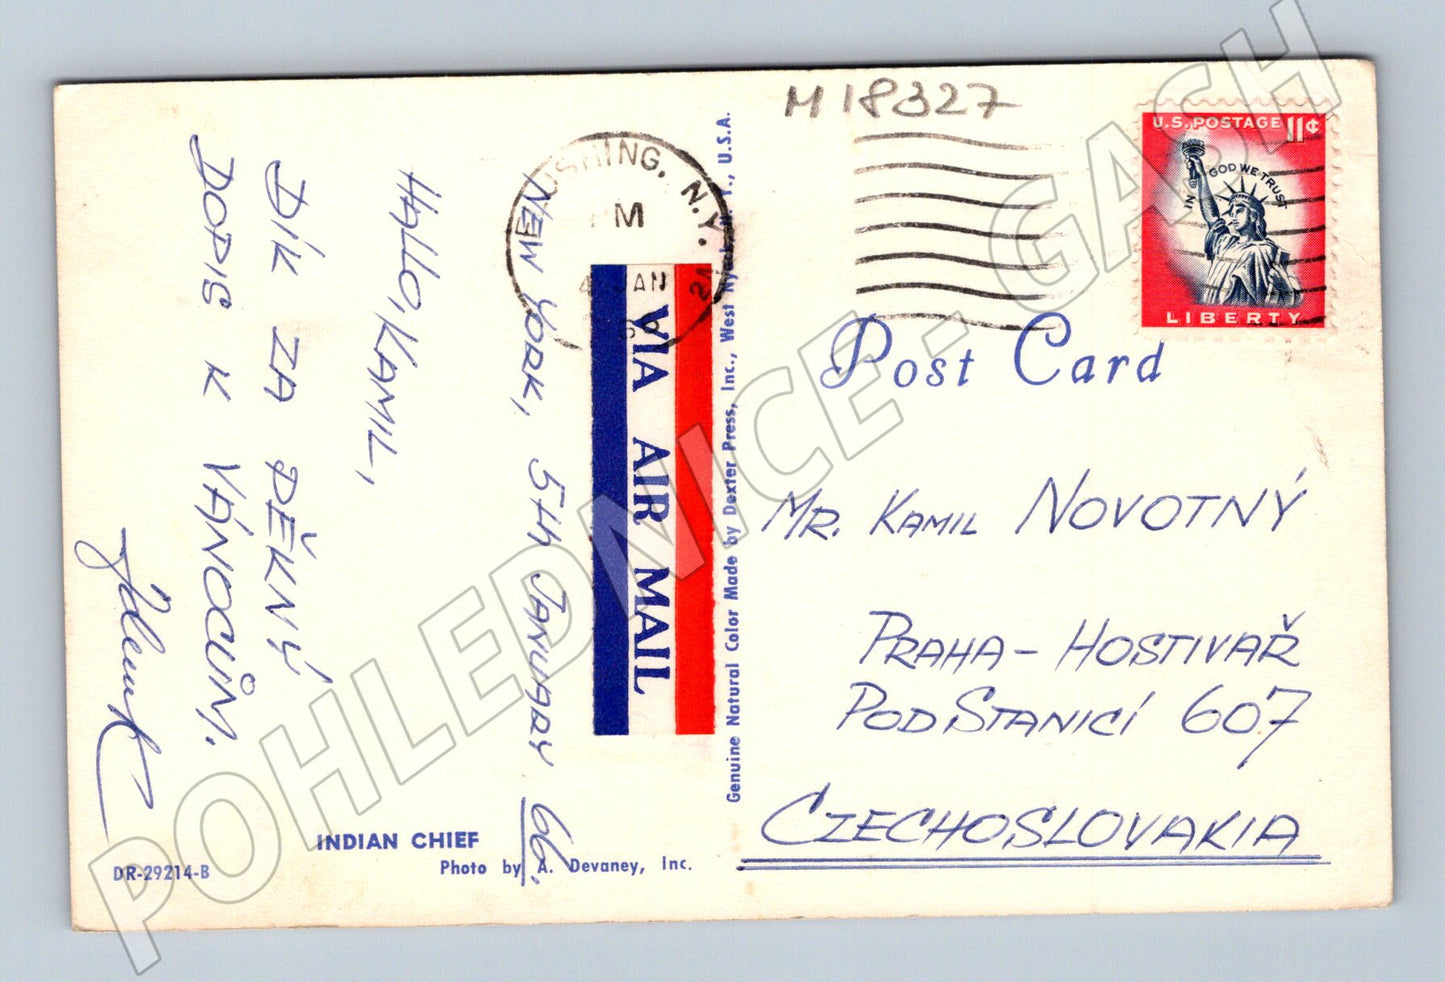 M 18327
U.S. POSTAGE 11¢
IN GOD WE TRUST
LIBERTY
FLUSHING, N.Y.
PM
JAN
VIA AIR MAIL
Post Card
NEW YORK, 5TH JANUARY 66.
HALLO, KAMIL,
DÍK ZA PĚKNÝ
DOPIS K
VÁNOCŮM.
MR. KAMIL NOVOTNÝ
PRAHA – HOSTIVAŘ
POD STANICÍ 607
CZECHOSLOVAKIA
Genuine Natural Color Made by Dexter Press, Inc., West Nyack, N. Y., U.S.A.
INDIAN CHIEF
Photo by A. Devaney, Inc.
DR-29214-B
POHLEDNICE - GASH